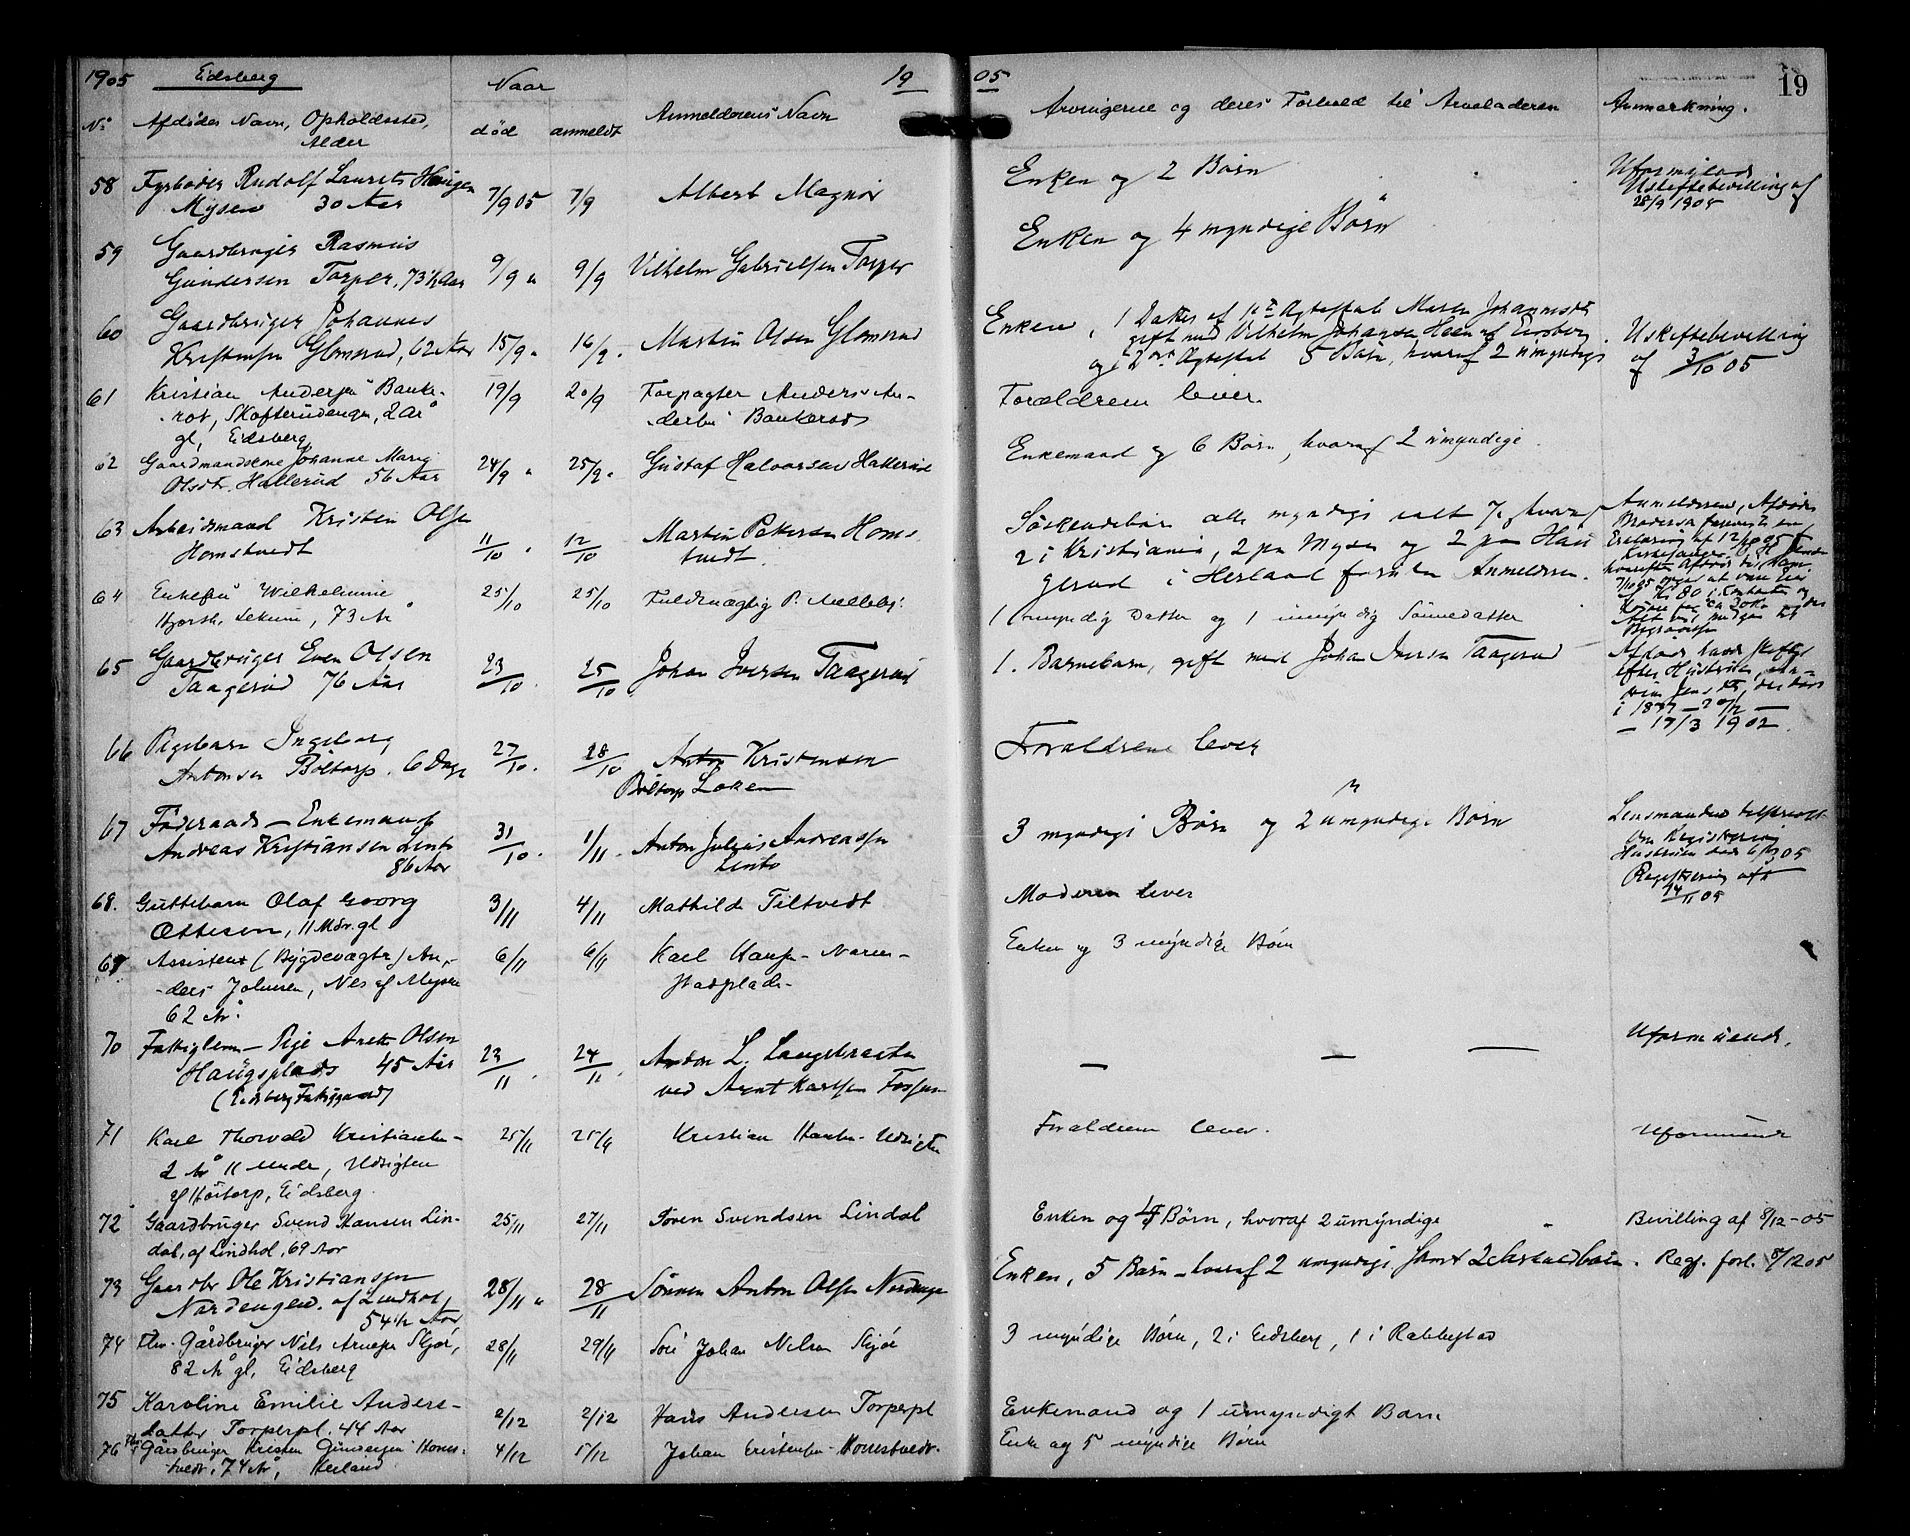 1905 Eidsberg Naar 19 05 19
No Afdødes Navn, Opholdssted, Alder død anmeldt Anmelderens Navn Arvingerne og deres Forhold til Arveladeren Anmærkning.
58 Fyrbøder Rudolf Laurits Haugen 7/9 05 7/9 Albert Magnor Enken og 2 Børn
Mysen 30 Aar
Uskiftebevilling af
28/9 1905
59 Gaardbruger Rasmus
Gundersen Torper, 73½ Aar 9/9 " 9/9 Vilhelm Gabrielsen Torper Enken og 4 myndige Børn
60 Gaardbruger Johannes
Kristensen Glomsrud, 62 Aar 15/9 " 16/9 . Martin Olsen Glomsrud Enken, 1 Datter af 1ste Ægteskab Maren Johannesdt
gift med Vilhelm Johansen Heen af Eidsberg
og i 2det Ægteskab 5 Børn, hvoraf 2 umyndige
Uskiftebevilling
af 3/10 05
61 Kristian Andersen Banke-
rød, Skofterudengen, 2 År
gl, Eidsberg 19/9 20/9 Forpagter Anders An-
dersen Bankerød Forældrene lever.
62 Gaardmandskone Johanne Marie
Olsdtr. Hallerud 56 Aar 24/9 " 25/9 " Gustaf Halvorsen Hallerud Enkemand og 6 Børn, hvoraf 2 umyndige
63 Arbeidsmand Kristen Olsen
Homstvedt 11/10 " 12/10 Martin Petersen Homs
tvedt. Søskendebørn alle myndige ialt 7, hvoraf
2 i Kristiania, 2 paa Mysen og 2 paa Hau
gerud i Herland foruden Anmelderen.
Anmelderen, Afdødes
64 Enkefru Wilhelmine
Hjorth, Lekum, 73 År 25/10 25/10 Fuldmægtig P. Melleby. 1 myndig Datter og 1 umyndig Sønnedatter
65 Gaardbruger Even Olsen
Taagerud 76 Aar 23/10 . 25/10 . Johan Iversen Taagerud 1. Barnebarn, gift med Johan Iversen Taagerud
efter Hustruen
i 1877 —
— 17/3 1902.
66 Pigebarn Ingeborg
Antonsen Boltorp. 6 Dage 27/10 . 28/10 Anton Kristensen
Boltorp Løken Forældrene lever
67 Føderaads-Enkemand
Andreas Kristiansen Linto
86 Aar 31/10 . 1/11 . Anton Julius Andreassen
Linto 3 myndige Børn og 2 umyndige Børn
Lensmanden
om Registrering
Hustruen død
Registrering
14/11 05
68. Guttebarn Olaf Georg
Ottesen, 11 Mdr. gl 3/11 4/11 Mathilde Tiltvedt Moderen lever
69 Assistent (Bygdevægter) An-
ders Johnsen, Nes af Mysen
62 År. 6/11 6/11 Karl Hansen Naren-
stadplads- Enken og 3 myndige Børn
70 Fattiglem - Pige Anette Olsen
Haugsplads 45 Aar
(Eidsberg Fattiggaard) 23/11 . 24/11 . Anton L. Langebrætten
ved Arent Karlsen Fossum — — — Uformuende.
71 Karl Thorvald Kristiansen-
2 År 11 Mndr, Udsigten
af Høitorp, Eidsberg. 25/11 25/11 Kristian Hansen - Udsigten Forældrene lever. Uformuende
72 Gaardbruger Svend Hansen Lin-
dal, af Lindhol, 69 Aar 25/11 27/11 Søren Svendsen Lindal Enken og 5 Børn, hvoraf 2 umyndige " Bevilling af 8/12-05
73 Gaardbr Ole Kristiansen
Nordengen. af Lindhol,
54½ Aar 28/11 " 28/11 Sønnen Anton Olsen Nordengen Enken, 5 Børn - hvoraf 2 umyndige samt 2 . Reg. forl. 8/12 05
74 Fhv. Gårdbruger Nils Arnesen Skjør,
82 År gl, Eidsberg 28/11 29/11 Søn Johan Nilsen Skjør 3 myndige Børn, 2 i Eidsberg, 1 i Rakkestad
75 Karoline Emilie Anders-
datter Torperpl. 44 Aar 2/12 2/12 Hans Andersen Torperpl Enkemand og 1 umyndigt Barn
76 Fhv Gårdbruger Kristen Gundersen Homs-
tvedt, 74 År, Herland 4/12 5/12 Johan Kristensen Homstvedt. Enke og 5 myndige Børn